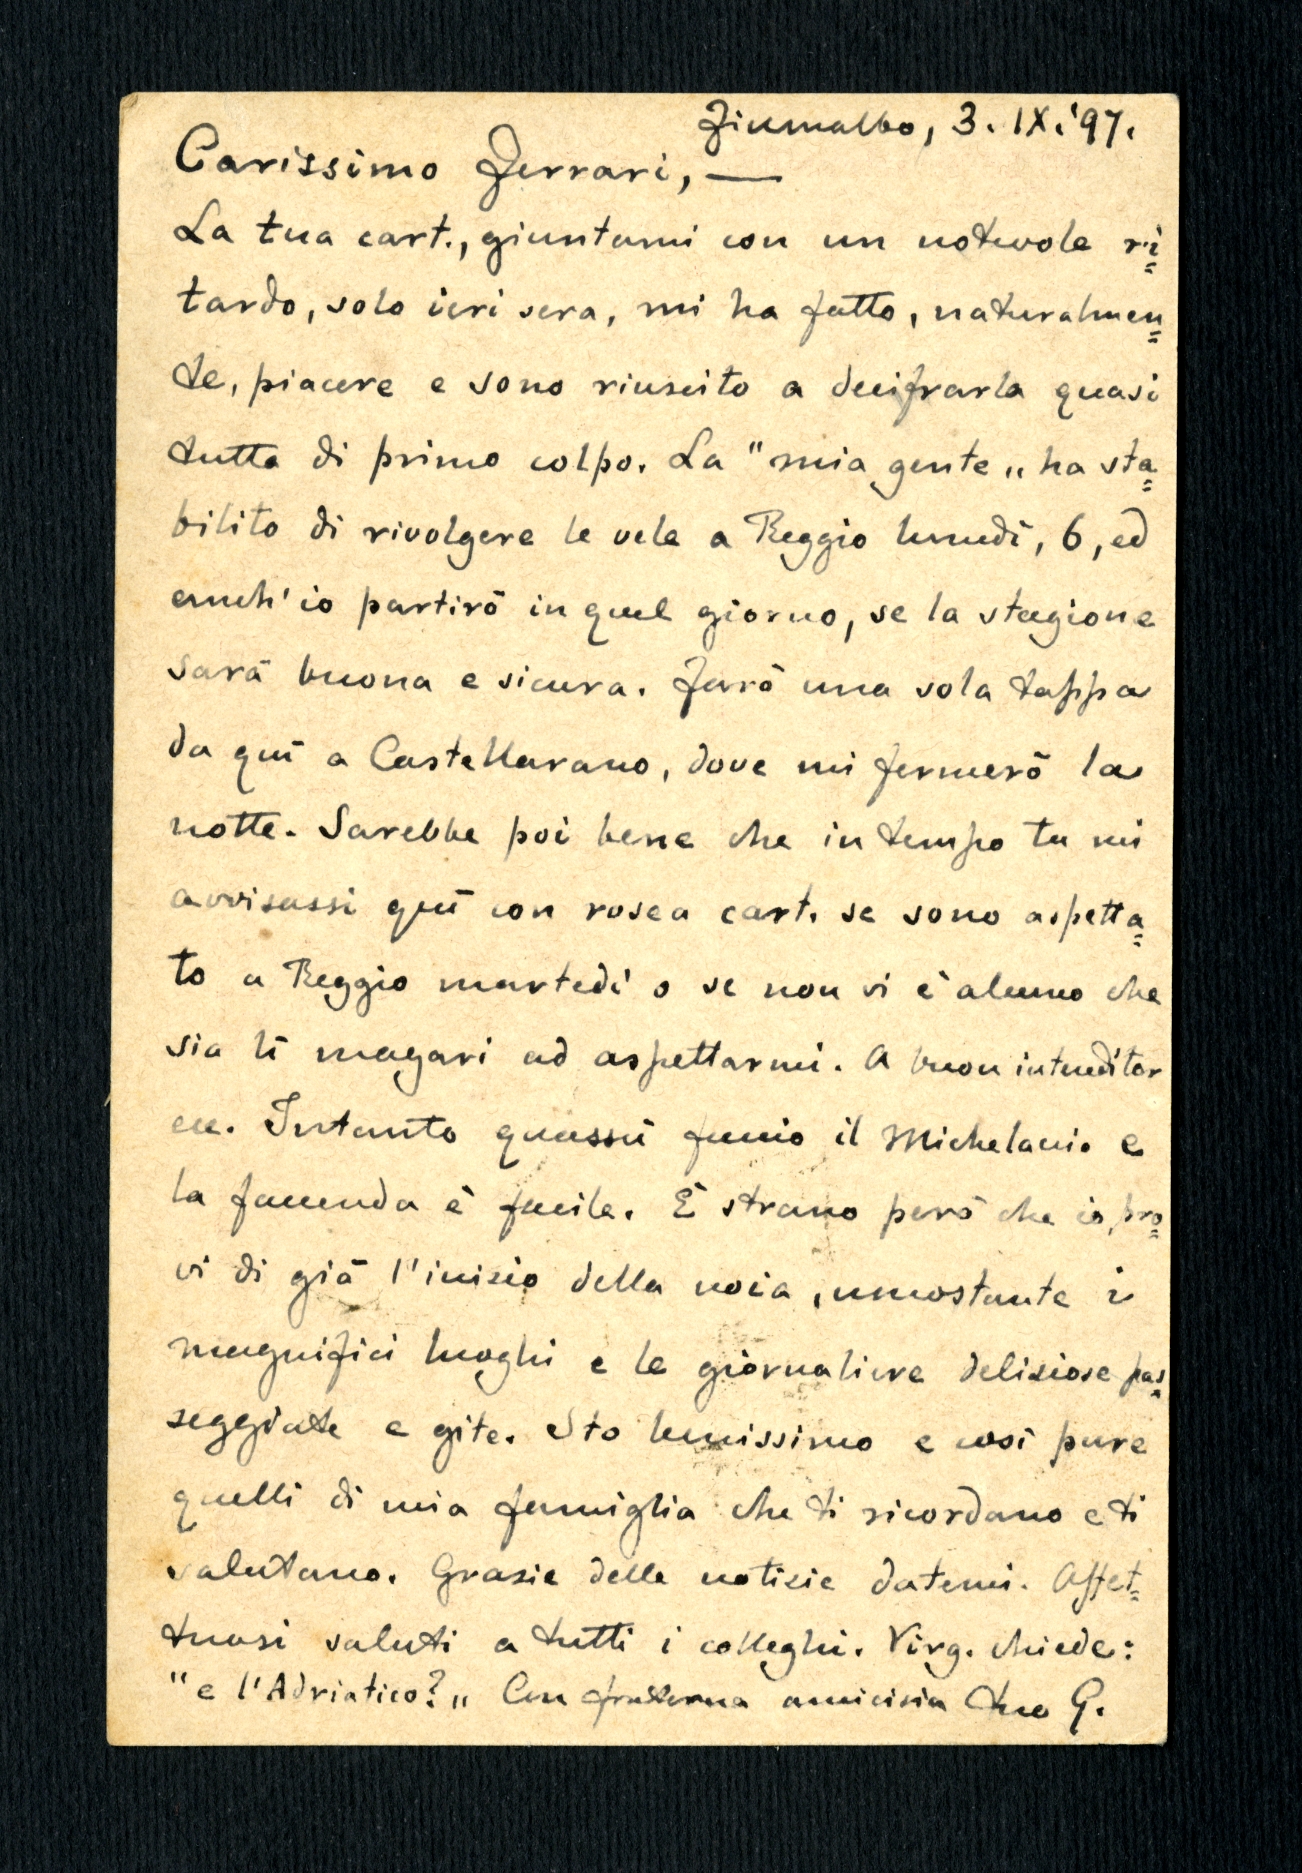 Fiumalbo, 3. IX. '97.
Carissimo Ferrari, —
La tua cart., giuntami con un notevole ri=
tardo, solo ieri sera, mi ha fatto, naturalmen=
te, piacere e sono riuscito a decifrarla quasi
tutta di primo colpo. La "mia gente„ ha sta=
bilito di rivolgere le vele a Reggio lunedì, 6, ed
anch'io partirò in quel giorno, se la stagione
sarà buona e sicura. Farò una sola tappa
da quì a Castellarano, dove mi fermerò la
notte. Sarebbe poi bene che in tempo tu mi
avvisassi quì con rosea cart. se sono aspetta=
to a Reggio martedì o se non vi è alcuno che
sia lì magari ad aspettarmi. A buon intenditor
ecc. Intanto quassù funio il Michelaci. e
la faccenda è facile. È strano però che io pro=
vi di già l'inizio della noia, nonostante i
magnifici luoghi e le giornaliere deliziose pas=
seggiate e gite. Sto benissimo e così pure
quelli di mia famiglia che ti ricordano e ti
salutano. Grazie delle notizie datemi. Affet=
tuosi saluti a tutti i colleghi. Virg. chiede:
"e l'Adriatico?„ Con fraterna amicizia tuo G.